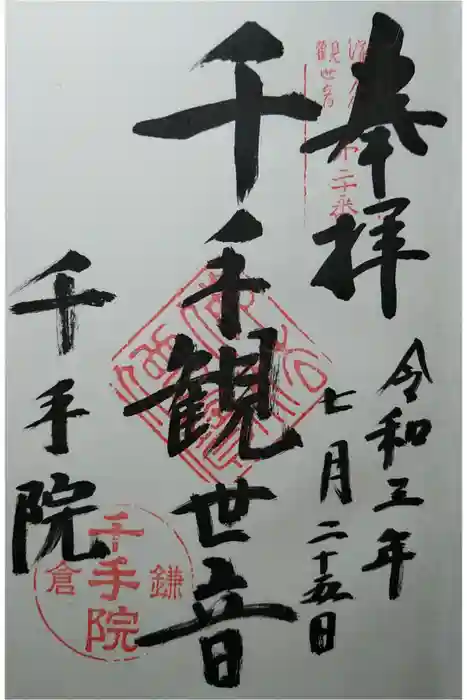 奉拝
令和三年
七月二十五日
千手観世音
千手院
観世音
鎌倉
千手院